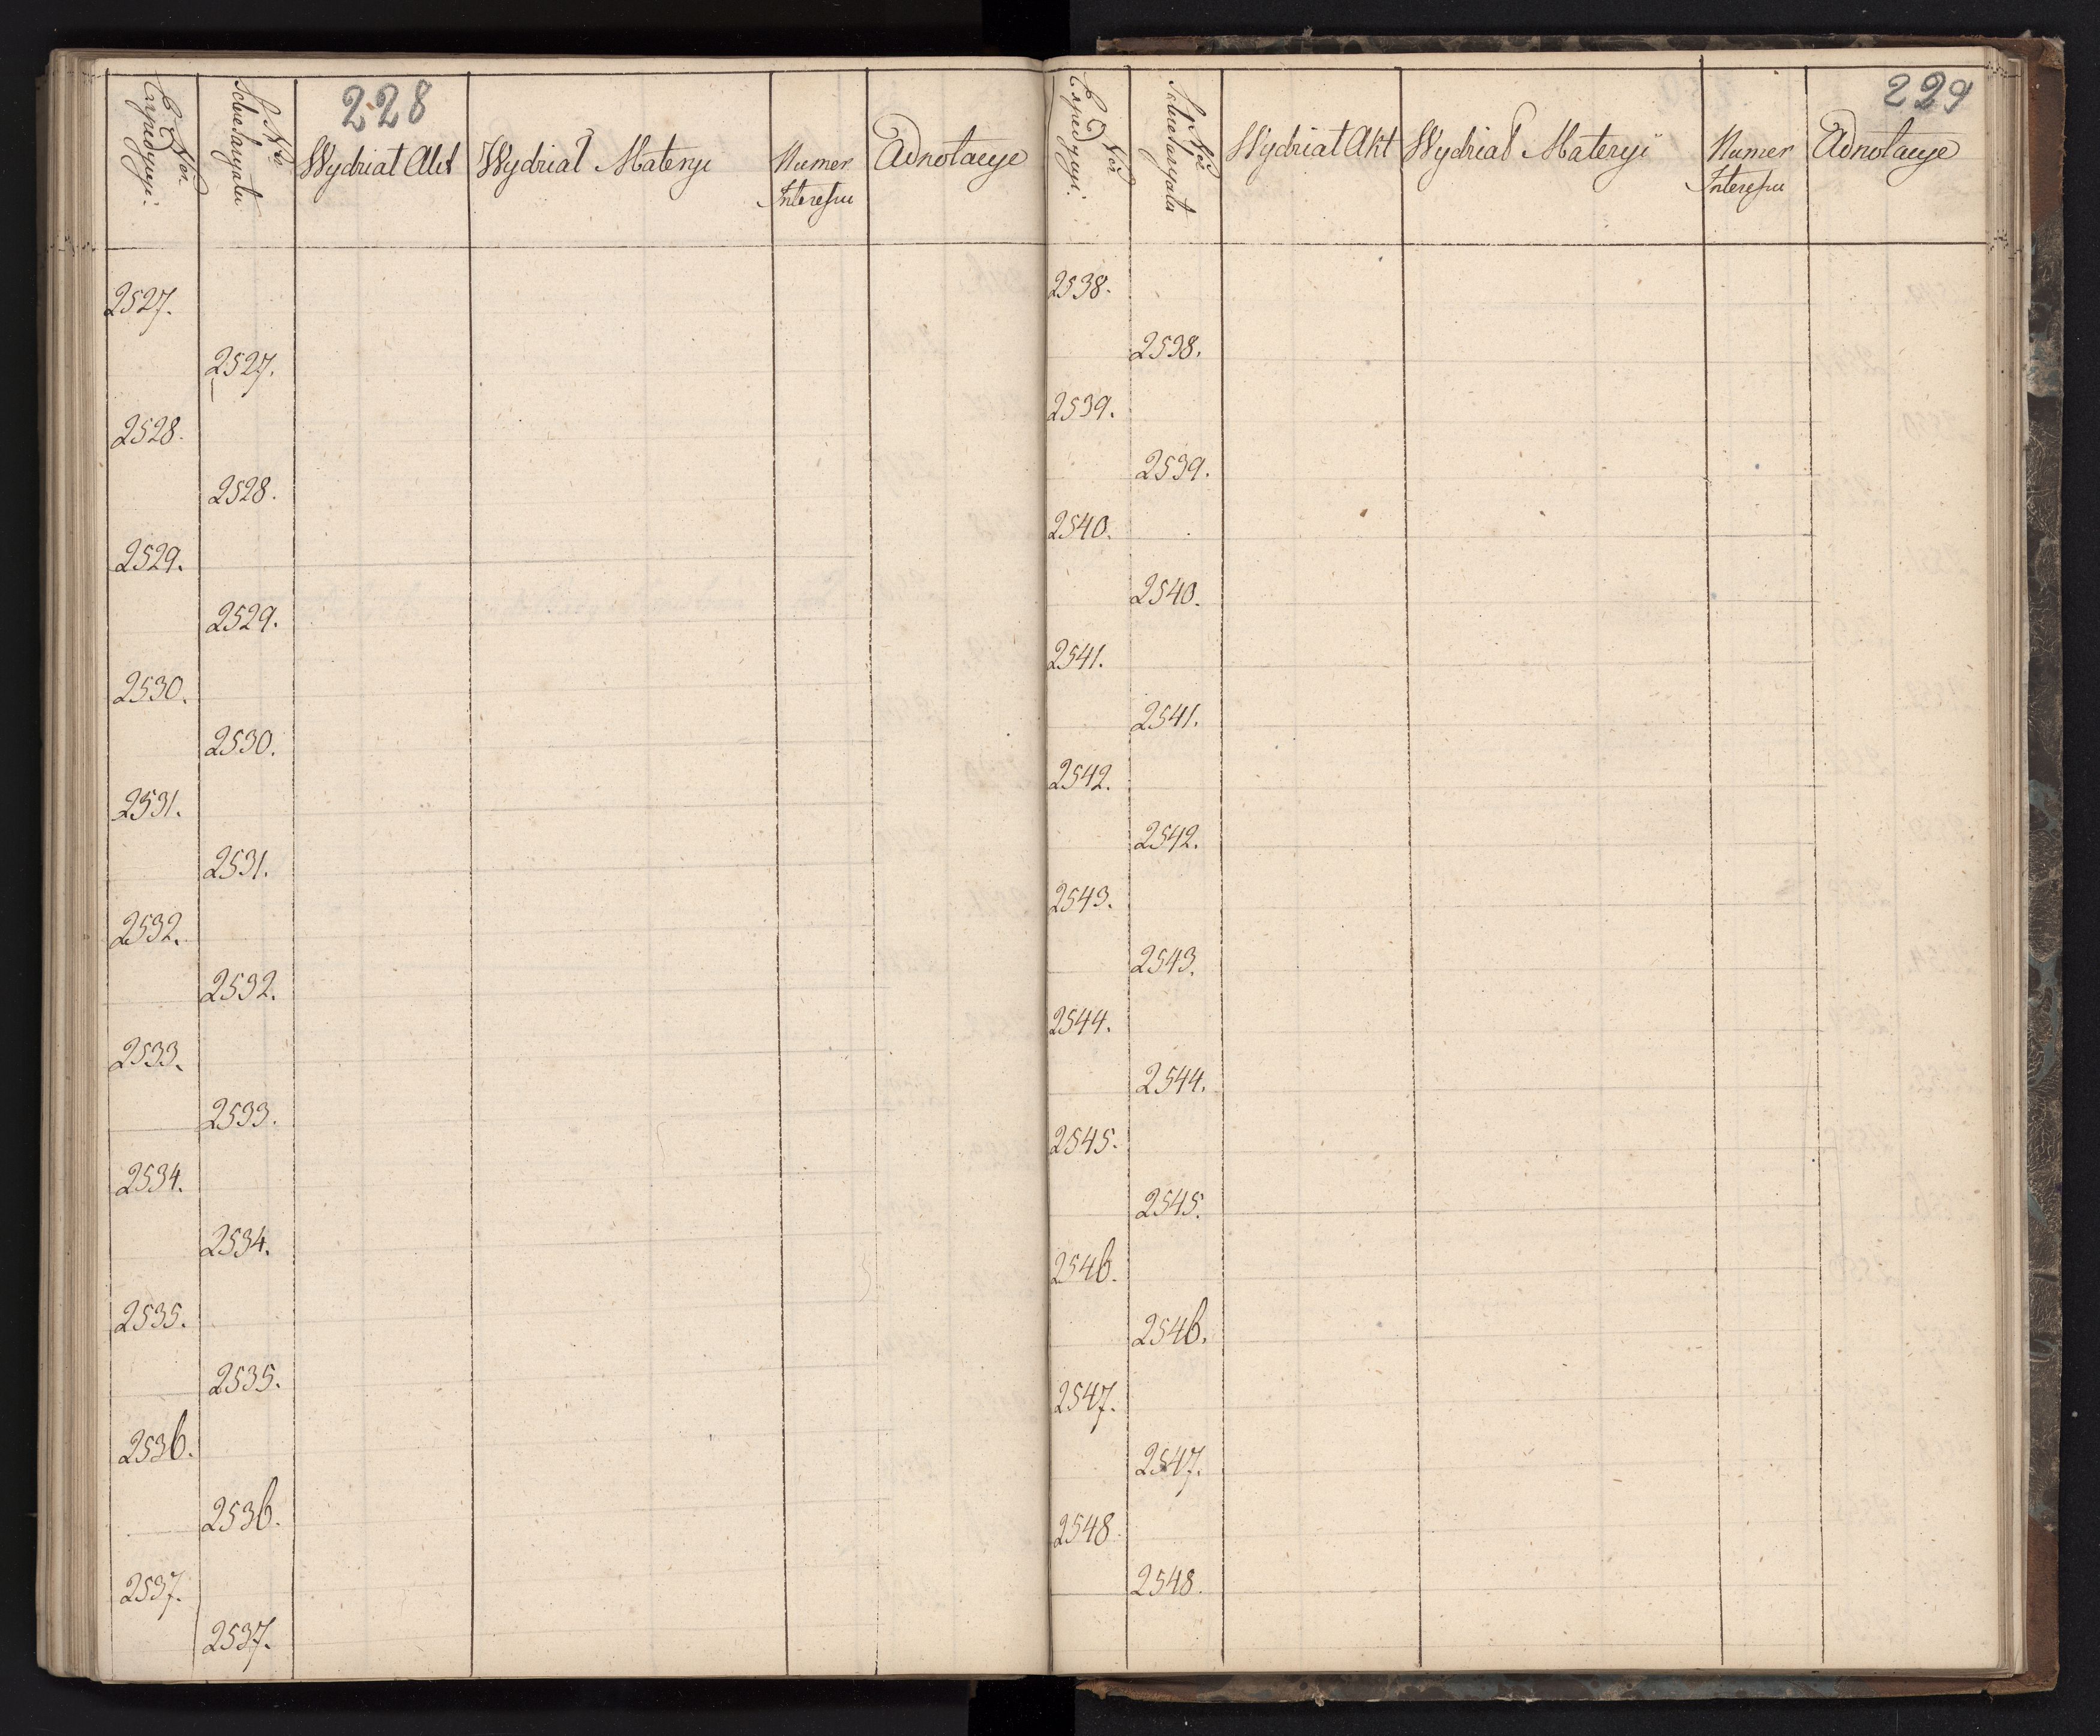 228
Nro Expedycyi.
Nro Sekretaryatu
Wydział Akt
Wydział Materyi
Numer
Interessu
Adnotacye
2527.
2527.
2528.
2528.
2529.
2529.
2530.
2530.
2531.
2531.
2532.
2532.
2533.
2533.
2534.
2534.
2535.
2535.
2536.
2536.
2537.
2537.
229
Nro Expedycyi.
Nro Sekretaryatu
Wydział Akt
Wydział Materyi
Numer
Interessu
Adnotacye
2538.
2538.
2539.
2539.
2540.
2540.
2541.
2541.
2542.
2542.
2543.
2543.
2544.
2544.
2545.
2545.
2546.
2546.
2547.
2547.
2548
2548.